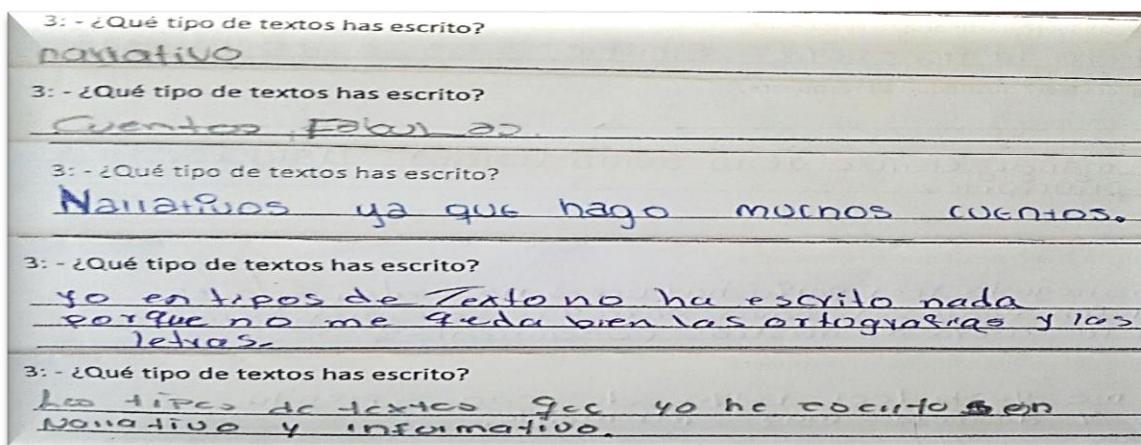 3: - ¿Qué tipo de textos has escrito?
narrativo
3: - ¿Qué tipo de textos has escrito?
Cuentos, Fabulas.
3: - ¿Qué tipo de textos has escrito?
Narrativos ya que hago muchos cuentos.
3: - ¿Qué tipo de textos has escrito?
yo en tipos de Texto no ha escrito nada
porque no me queda bien las ortografias y las
letras.
3: - ¿Qué tipo de textos has escrito?
Los tipos de textos que yo he escrito son
Narrativo y informativo.